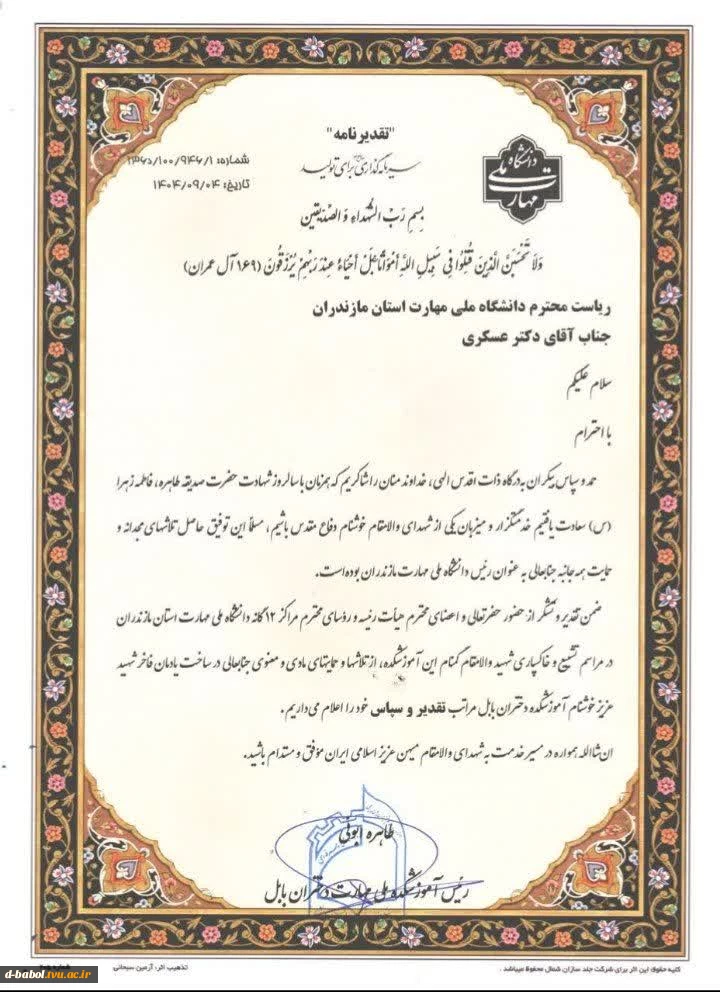 "تقدیرنامه"
سرمایه‌گذاری برای تولید
شماره: ۳۶۵/۱۰۰/۹۴۶/۱
تاریخ: ۱۴۰۴/۰۹/۰۴
دانشگاه ملی مهارت
بِسمِ رَبِّ الشُّهداءِ وَ الصِّدیقین
وَلَا تَحْسَبَنَّ الَّذِينَ قُتِلُوا فِي سَبِيلِ اللَّهِ أَمْوَاتًا بَلْ أَحْيَاءٌ عِنْدَ رَبِّهِمْ يُرْزَقُونَ (۱۶۹ آل عمران)
ریاست محترم دانشگاه ملی مهارت استان مازندران
جناب آقای دکتر عسکری
سلام علیکم
با احترام
حمد و سپاس بیکران به درگاه ذات اقدس الهی، خداوند منان را شاکریم که همزمان با سالروز شهادت حضرت صدیقه طاهره، فاطمه زهرا
(س) سعادت یافتیم خدمتگزار و میزبان یکی از شهدای والامقام خوشنام دفاع مقدس باشیم، مسلماً این توفیق حاصل تلاشهای مجدانه و
حمایت همه جانبه جنابعالی به عنوان رئیس دانشگاه ملی مهارت مازندران بوده است.
ضمن تقدیر و تشکر از حضور حضرتعالی و اعضای محترم هیأت رئیسه و رؤسای محترم مراکز ۱۲ گانه دانشگاه ملی مهارت استان مازندران
در مراسم تشییع و خاکسپاری شهید والامقام گمنام این آموزشکده، از تلاشها و حمایتهای مادی و معنوی جنابعالی در ساخت یادمان فاخر شهید
عزیز خوشنام آموزشکده دختران بابل مراتب تقدیر و سپاس خود را اعلام می‌داریم.
ان شاالله همواره در مسیر خدمت به شهدای والامقام میهن عزیز اسلامی ایران موفق و مستدام باشید.
طاهره ابوئی
رئیس آموزشکده ملی مهارت دختران بابل
کلیه حقوق این اثر برای شرکت جلد سازان شمال محفوظ میباشد.
تذهیب اثر: آرمین سبحانی
d-babol.tvu.ac.ir